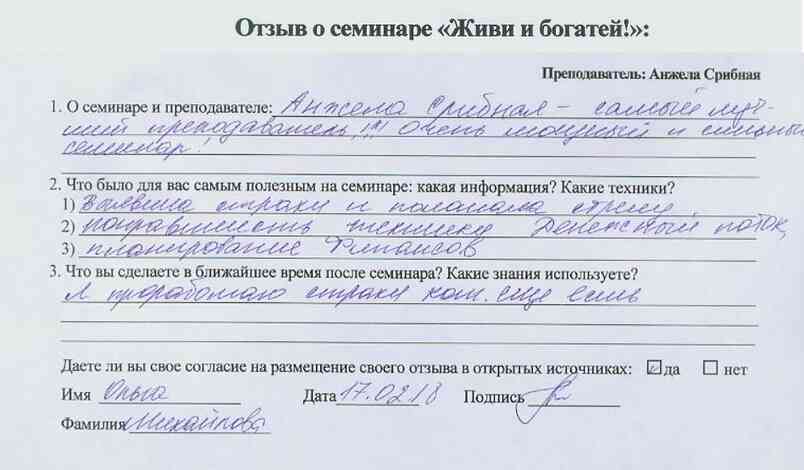 Отзыв о семинаре «Живи и богатей!»:
Преподаватель: Анжела Срибная
1. О семинаре и преподавателе: Анжела Срибная - самый луч-
ший преподаватель!!! Очень мощный и сильный
семинар!
2. Что было для вас самым полезным на семинаре: какая информация? Какие техники?
1) Выявила страхи и поломала
2) понравилась техника Денежный поток,
3) планирование Финансов
3. Что вы сделаете в ближайшее время после семинара? Какие знания используете?
Я проработаю страхи кот. еще есть
Даете ли вы свое согласие на размещение своего отзыва в открытых источниках: ☑ да ☐ нет
Имя Ольга Дата 17.02.18 Подпись
Фамилия Михайлова